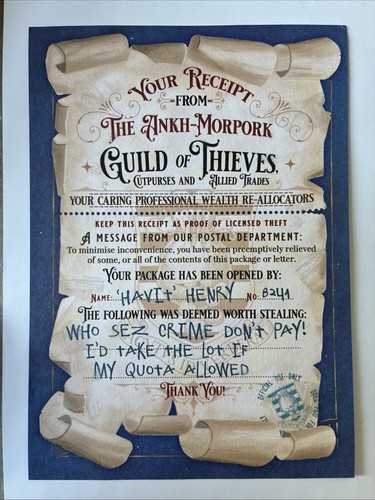 YOUR RECEIPT
-FROM-
THE ANKH-MORPORK
GUILD OF THIEVES,
CUTPURSES AND ALLIED TRADES
YOUR CARING PROFESSIONAL WEALTH RE-ALLOCATORS
KEEP THIS RECEIPT AS PROOF OF LICENSED THEFT
A MESSAGE FROM OUR POSTAL DEPARTMENT:
To minimise inconvenience, you have been preemptively relieved
of some, or all of the contents of this package or letter.
YOUR PACKAGE HAS BEEN OPENED BY:
NAME: 'HAVIT' HENRY NO: 8241
THE FOLLOWING WAS DEEMED WORTH STEALING:
WHO SEZ CRIME DON'T PAY!
I'D TAKE THE LOT IF
MY QUOTA ALLOWED
THANK YOU!
OFFICIAL USE ONLY